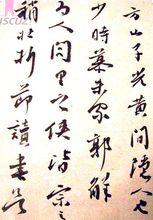 方山子光黃間隱人也
少時慕朱家郭解
為人閭里之俠皆宗之
稍壯折節讀書